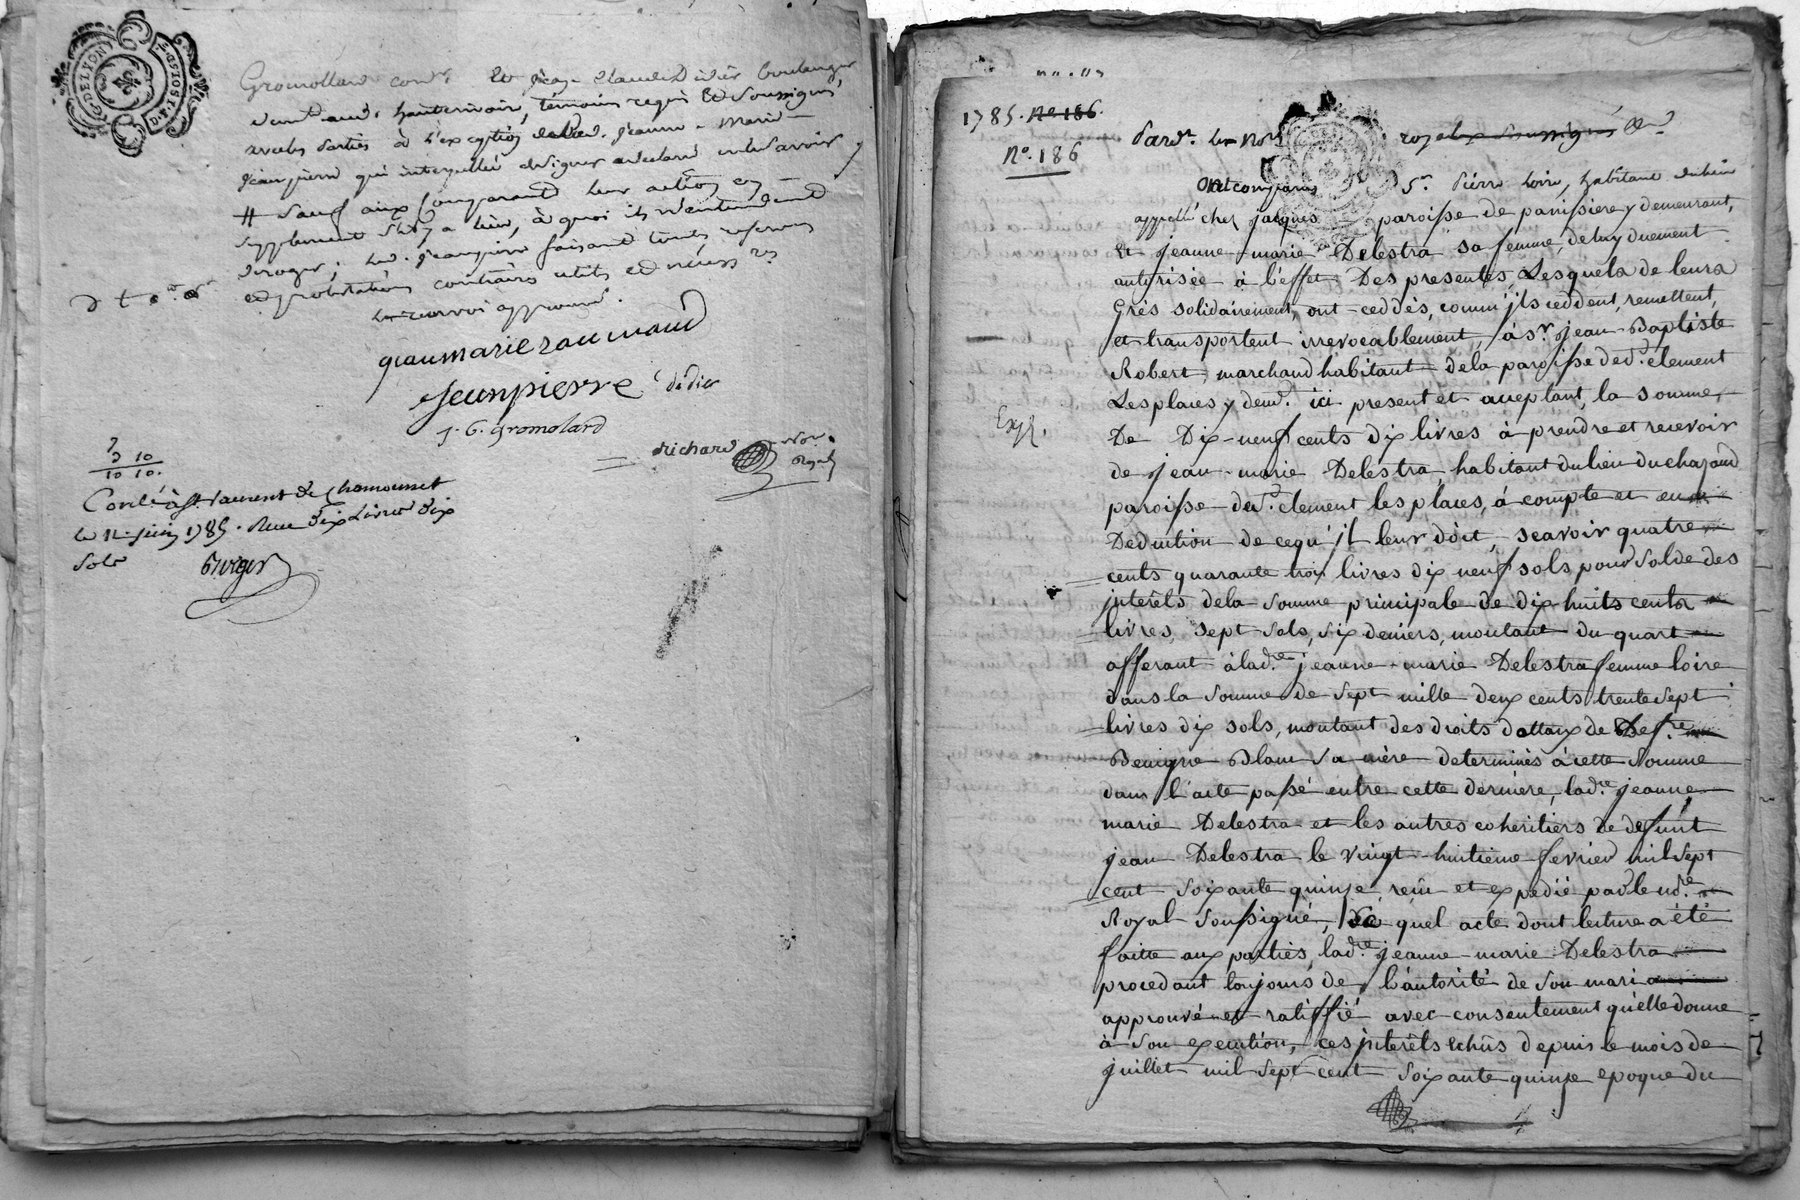 G. DE LYON
2. S. 10 ST. P. D.
Gromollard et Jean Claude Didier boulanger
témoins requis et soussignés
avec les parties à l'exception de Jeanne-Marie
Jeanpierre qui interpellée de signer a déclaré ne le savoir
# sauf aux comparants leur action en
supplement s'il y a lieu, à quoi ils n'entendent
deroger; led. Jeanpierre faisant toutes reserves
et protestations contraires utiles et
le renvoi approuvé.
jeanmarie raumand
Jeanpierre didier
J. G. gromolard
Richard Not. Royal
3 10
10 10.
Conlé à St. Laurent de Chamousset
le 12 juin 1785. Recu dix Livres dix
sols
1785. No. 186
No. 186
Pardt. Les Nores royaux soussignés &
Ont comparus Sr. Pierre Loire, habitant du lieu
appellé chez jacques paroisse de panissiere y demeurant,
Et jeanne-marie Delestra sa femme, de luy duement
autorisée à l'effet Des presentes, Lesquels de leurs
Grés solidairement, ont ceddés, comm'ils ceddent, remettent,
et transportent irrevocablement, à sr. jean-Baptiste
Robert, marchand habitant de la paroisse de st. clement
Lesplaces y demt. ici present et acceptant, la somme
Exp.
De Dix-neuf cents dix livres à prendre et recevoir
de jean-marie Delestra, habitant du lieu du
paroisse de st. clement les places, à compte et en
Deduction de cequ'il leur doit, scavoir quatre
cents quarante trois livres dix neuf sols pour solde des
interêts dela somme principale de dix-huits cents
livres, sept sols, six deniers, montant du quart
afferant à lade. jeanne-marie Delestra femme loire
dans la somme de sept mille deux cents trente sept
livres dix sols, montant des droits dottaux de
Benigne Blanc sa mère determinés à cette somme
dans l'acte passé entre cette derniére, lade. jeanne
marie Delestra et les autres coheritiers de defunt
jean Delestra le vingt-huitieme fevrier mil sept
cent soixante quinze reçu et expedié par le nore.
Royal soussigné, quel acte dont lecture a été
faitte aux parties, lade. jeanne-marie Delestra
procedant toujours de l'autorité de son mari
approuvé et ratiffié avec consentement qu'elle donne
à son execution, ces interêts echûs depuis le mois de
juillet mil sept cent soixante quinze epoque du